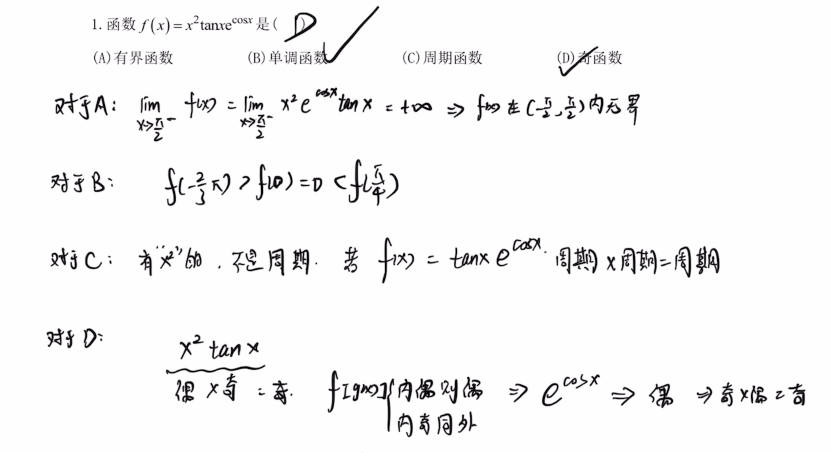 1. 函数 f(x)=x²tanxe^{cosx} 是( D )
(A)有界函数 (B)单调函数 (C)周期函数 (D)奇函数
对于A: lim_{x→π/2⁻} f(x) = lim_{x→π/2⁻} x² e^{cosx} tan x = +∞ ⇒ f(x) 在 (-π/2, π/2) 内无界
对于B: f(-2/3 π) > f(0) = 0 < f(π/4)
对于C: 有"x²"的, 不是周期. 若 f(x) = tanx e^{cosx}. 周期×周期=周期
对于D:
x² tan x
偶×奇=奇. f[g(x)]{内偶则偶 ⇒ e^{cosx} ⇒ 偶 ⇒ 奇×偶=奇
内奇同外